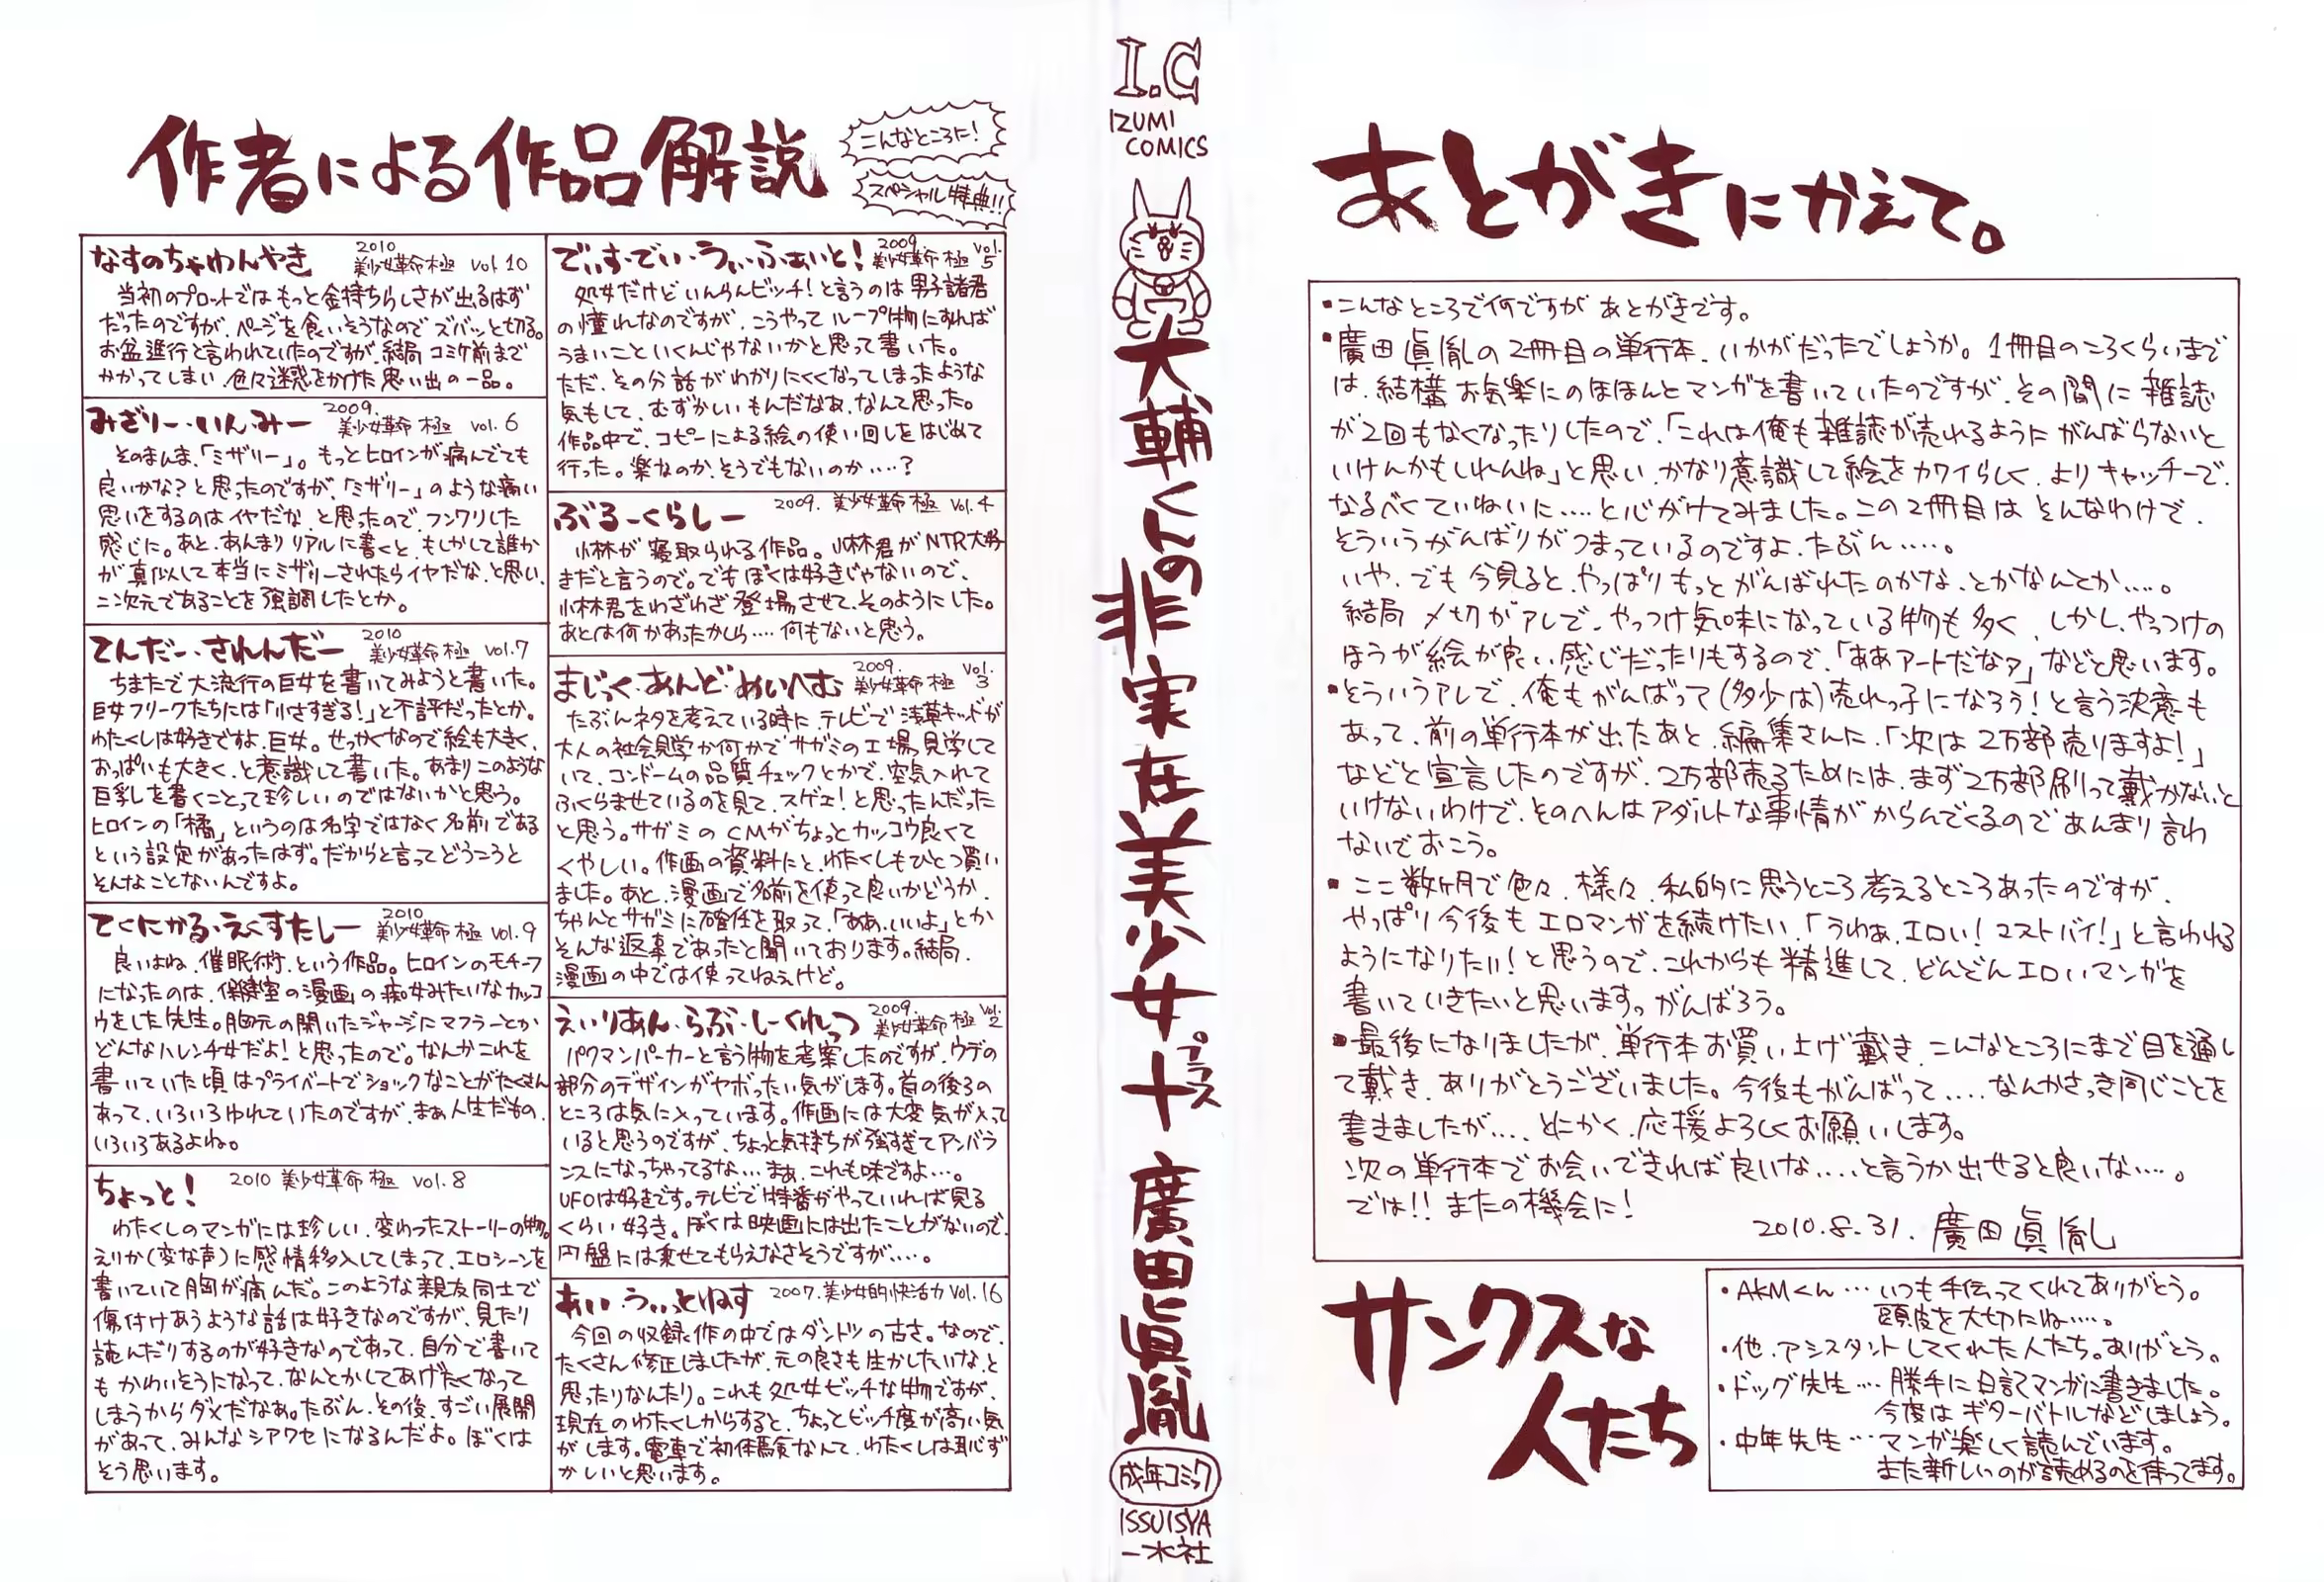 作者による作品解説
こんなところに!
スペシャル特典!!
なすのちゃわんやき 2010 美少女革命 極 Vol.10
当初のプロットではもっと金持ちらしさが出るはず
だったのですが、ページを食いそうなのでズバッと切る。
お盆進行と言われていたのですが、結局コミケ前まで
かかってしまい、色々迷惑をかけた思い出の一品。
みざりー・いん・みー 2009. 美少女革命 極 vol.6
そのまんま、「ミザリー」。もっとヒロインが病んでても
良いかな?と思ったのですが、「ミザリー」のような痛い
思いをするのはイヤだな、と思ったので、フンワリした
感じに。あと、あんまりリアルに書くと、もしかして誰か
が真似して本当にミザリーされたらイヤだな、と思い、
二次元であることを強調したとか。
てんだー・されんだー 2010 美少女革命 極 vol.7
ちまたで大流行の巨女を書いてみようと書いた。
巨女フリークたちには「小さすぎる!」と不評だったとか。
わたくしは好きですよ、巨女。せっかくなので絵も大きく、
おっぱいも大きく、と意識して書いた。あまりこのような
巨乳を書くことって珍しいのではないかと思う。
ヒロインの「橘」というのは名字ではなく名前である
という設定があったはず。だからと言ってどうころと
そんなことないんですよ。
てくにかる・えくすたしー 2010 美少女革命 極 vol.9
良いよね、催眠術、という作品。ヒロインのモチーフ
になったのは、保健室の漫画の痴女みたいなカッコ
ウをした先生。胸元の開いたジャージにマフラーとか
どんなハレンチ女だよ!と思ったので。なんかこれを
書いていた頃はプライベートでショックなことがたくさん
あって、いろいろゆれていたのですが、まぁ人生だもの、
いろいろあるよね。
ちょっと! 2010 美少女革命 極 vol.8
わたくしのマンガには珍しい、変わったストーリーの物。
えりか(変な声)に感情移入してしまって、エロシーンを
書いていて胸が痛んだ。このような親友同士で
傷付けあうような話は好きなのですが、見たり
読んだりするのが好きなのであって、自分で書いて
もかわいそうになって、なんとかしてあげたくなって
しまうからダメだなぁ。たぶん、その後、すごい展開
があって、みんなシアワセになるんだよ。ぼくは
そう思います。
でぃす・でい・うぃ・ふぁいと! 2009 美少女革命 極 vol.5
処女だけどいんらんビッチ!と言うのは男子諸君
の憧れなのですが、こうやってループ物にすれば
うまいこといくんじゃないかと思って書いた。
ただ、その分話がわかりにくくなってしまったような
気もして、むずかしいもんだなぁ、なんて思った。
作品中で、コピーによる絵の使い回しをはじめて
行った。楽なのか、そうでもないのか....?
ぶるーくらしー 2009. 美少女革命 極 Vol.4
小林が寝取られる作品。小林君がNTR大好
きだと言うので。でもぼくは好きじゃないので、
小林君をわざわざ登場させて、そのようにした。
あとは何かあったかしら....何もないと思う。
まじっく・あんど・めいへむ 2009. 美少女革命 極 Vol.3
たぶんネタを考えている時に、テレビで浅草キッドが
大人の社会見学か何かでサガミの工場見学して
いて、コンドームの品質チェックとかで、空気入れて
ふくらませているのを見て、スゲェ!と思ったんだった
と思う。サガミのCMがちょっとカッコウ良くて
くやしい。作画の資料にと、わたくしもひとつ買い
ました。あと、漫画で名前を使って良いかどうか、
ちゃんとサガミに確任を取って、「ああ、いいよ」とか
そんな返事であったと聞いております。結局、
漫画の中では使ってねぇけど。
えいりあん・らぶ・しーくれっつ 2009. 美少女革命 極 Vol.2
パクマンパーカーと言う物を考案したのですが、ウデの
部分のデザインがヤボったい気がします。首の後ろの
ところは気に入っています。作画には大変気が入って
いると思うのですが、ちょっと気持ちが強すぎてアンバラ
ンスになっちゃってるな...まぁ、これも味ですよ...。
UFOは好きです。テレビで特番がやっていれば見る
くらい好き。ぼくは映画には出たことがないので、
円盤には乗せてもらえなさそうですが....。
あい・うぃっとねす 2007.美少女的快活力 Vol.16
今回の収録作の中ではダントツの古さ。なので、
たくさん修正しましたが、元の良さも生かしたいな、と
思ったりなんたり。これも処女ビッチな物ですが、
現在のわたくしからすると、ちょっとビッチ度が高い気
がします。電車で初体験なんて、わたくしは恥ず
かしいと思います。
I.C
IZUMI
COMICS
大輔くんの非実在美少女十 プラス
廣田眞胤
成年コミック
ISSUISYA
一水社
あとがきにかえて。
・こんなところで何ですが あとがきです。
・廣田眞胤の2冊目の単行本、いかがだったでしょうか。1冊目のころくらいまで
は、結構お気楽にのほほんとマンガを書いていたのですが、その間に雑誌
が2回もなくなったりしたので、「これは俺も雑誌が売れるようにがんばらないと
いけんかもしれんね」と思い、かなり意識して絵をカワイらしく、よりキャッチーで、
なるべくていねいに....と心がけてみました。この2冊目はそんなわけで、
そういうがんばりがつまっているのですよ、たぶん....。
いや、でも今見ると、やっぱりもっとがんばれたのかな、とかなんとか....。
結局〆切がアレで、やっつけ気味になっている物も多く、しかし、やっつけの
ほうが絵が良い感じだったりもするので、「ああアートだなァ」などと思います。
・そういうアレで、俺もがんばって(多少は)売れっ子になろう!と言う決意も
あって、前の単行本が出たあと、編集さんに、「次は2万部売りますよ!」
などと宣言したのですが、2万部売るためには、まず2万部刷って戴かないと
いけないわけで、そのへんはアダルトな事情がからんでくるのであんまり言わ
ないでおこう。
・ここ数ヶ月で色々、様々、私的に思うところ考えるところあったのですが、
やっぱり今後もエロマンガを続けたい、「うわぁ、エロい!マストバイ!」と言われる
ようになりたい!と思うので、これからも精進して、どんどんエロいマンガを
書いていきたいと思います。がんばろう。
・最後になりましたが、単行本お買い上げ戴き、こんなところにまで目を通し
て戴き、ありがとうございました。今後もがんばって....なんかさっき同じことを
書きましたが....とにかく、応援よろしくお願いします。
次の単行本でお会いできれば良いな....と言うか出せると良いな....。
では!!またの機会に!
2010.8.31. 廣田眞胤
サンクスな
人たち
・AKMくん...いつも手伝ってくれてありがとう。
頭皮を大切にね....。
・他、アシスタントしてくれた人たち。ありがとう。
・ドッグ先生...勝手に日記マンガに書きました。
今度はギターバトルなどしましょう。
・中年先生...マンガ楽しく読んでいます。
また新しいのが読めるのを待ってます。